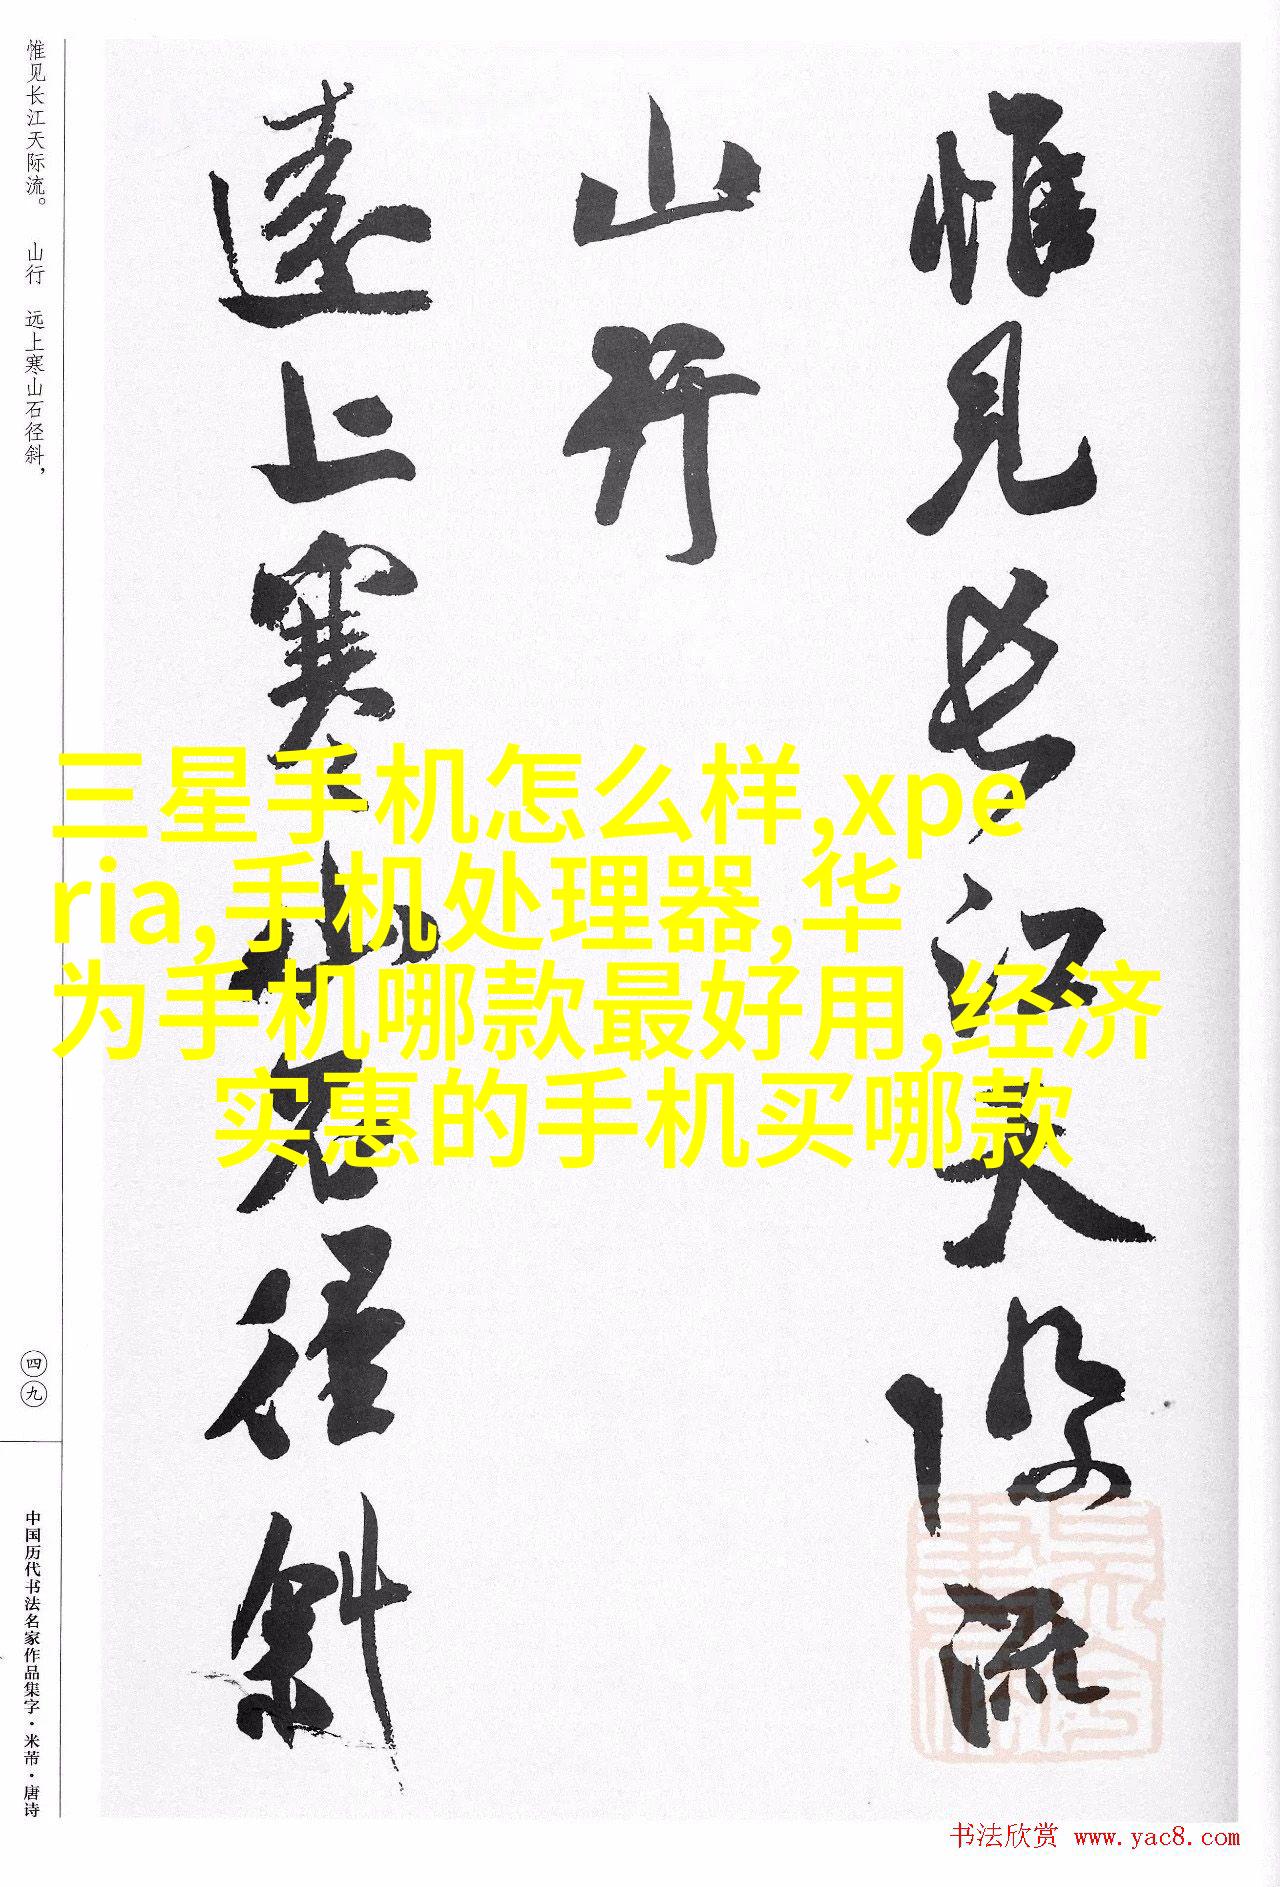 惟见长江天际流
山行
远上寒山石径斜
惟见长江天际流。 山行 远上寒山石径斜，
四九
中国历代书法名家作品集字·米芾·唐诗
三星手机怎么样,xpe
ria,手机处理器,华
为手机哪款最好用,经济
实惠的手机买哪款
书法欣赏 www.yac8.com